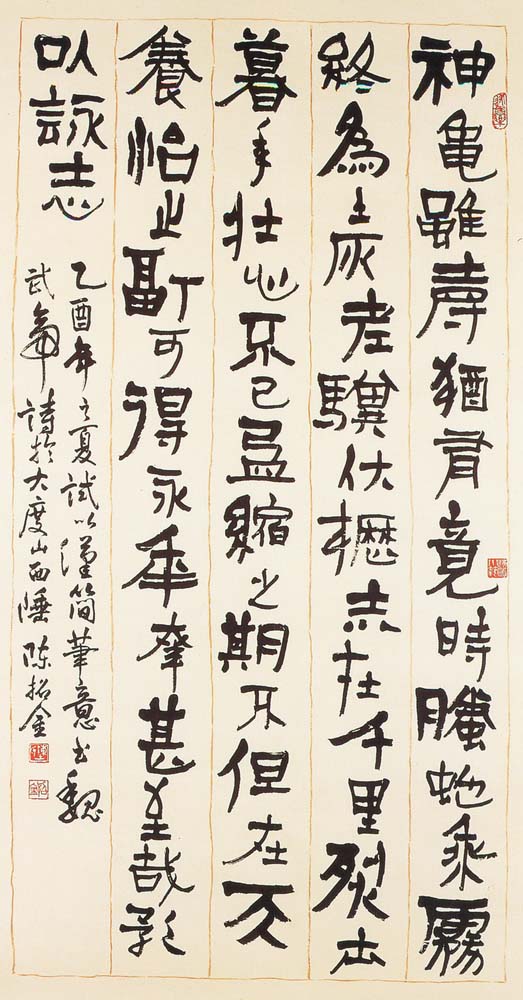 神亀雖壽猶有竟時螣虵乘霧
終為土灰老驥伏櫪志在千里烈士
暮年壯心不已盈縮之期不但在天
養怡之副可得永年幸甚至哉歌
以詠志
乙酉年之夏試以漢簡筆意書魏
武帝詩於大度山西陲 陳招金